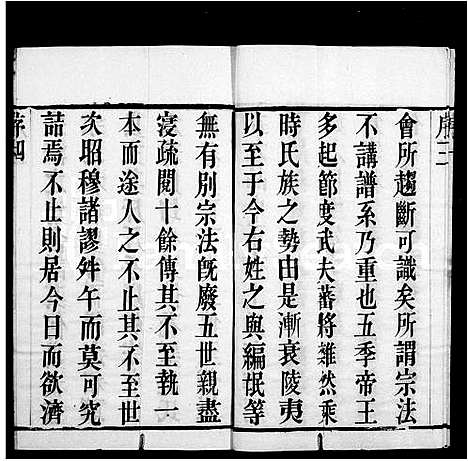 序三
會所趨斷可識矣所謂宗法
不講譜系乃重也五季帝王
多起節度武夫蕃將雜然乘
時氏族之勢由是漸衰陵夷
以至于今右姓之與編氓等
無有別宗法旣廢五世親盡
寖疏閱十餘傳其不至執一
本而途人之不止其不至世
次昭穆諸謬舛午而莫可究
詰焉不止則居今日而欲濟
序四